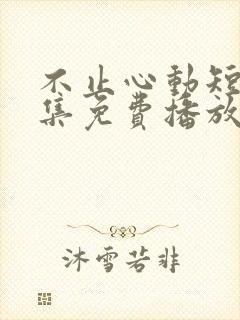 不止心動短
集免費播放
沐雪若非